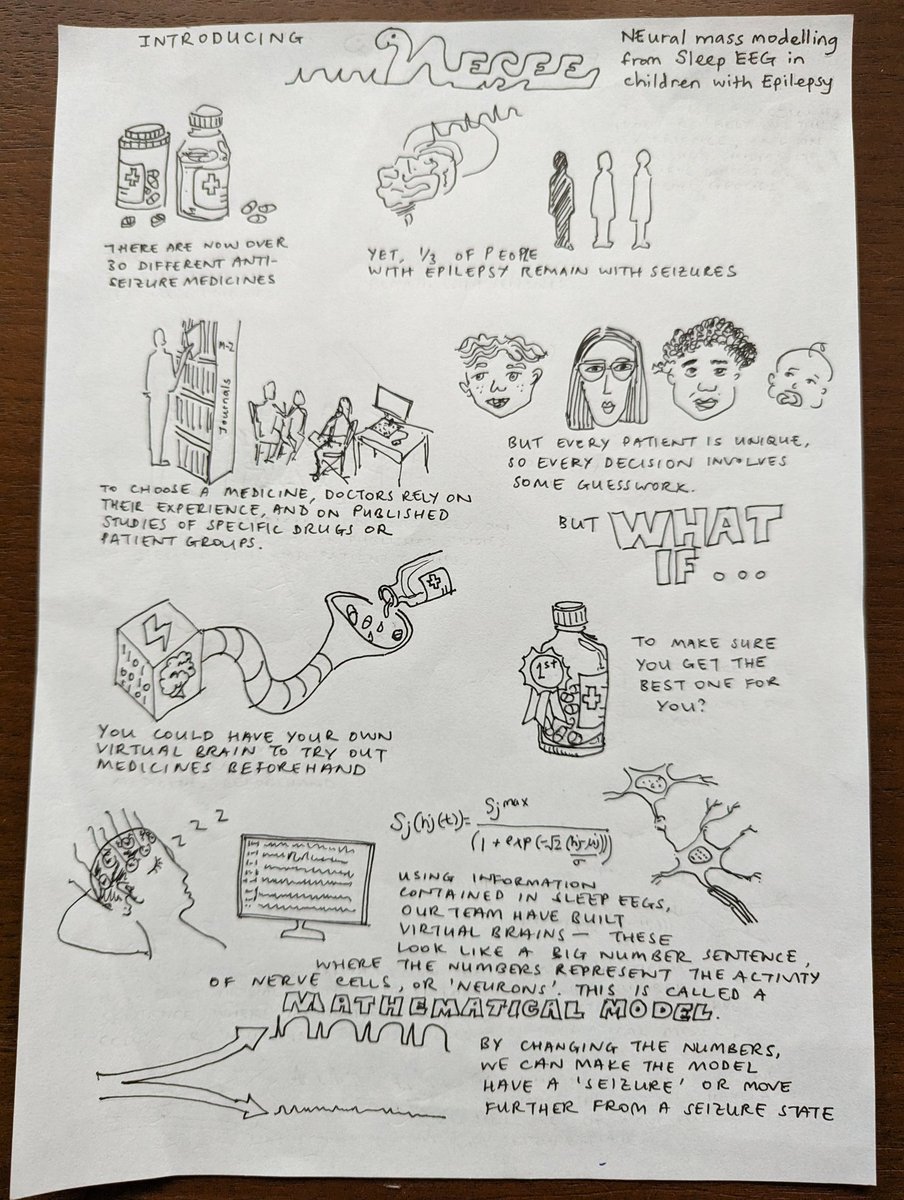 INTRODUCING
NESEE
NEural mass modelling
from Sleep EEG in
children with Epilepsy
THERE ARE NOW OVER
30 DIFFERENT ANTI-
SEIZURE MEDICINES
YET, 1/3 OF PEOPLE
WITH EPILEPSY REMAIN WITH SEIZURES
M-Z
Journals
TO CHOOSE A MEDICINE, DOCTORS RELY ON
THEIR EXPERIENCE, AND ON PUBLISHED
STUDIES OF SPECIFIC DRUGS OR
PATIENT GROUPS.
BUT EVERY PATIENT IS UNIQUE,
SO EVERY DECISION INVOLVES
SOME GUESSWORK.
BUT WHAT
IF...
YOU COULD HAVE YOUR OWN
VIRTUAL BRAIN TO TRY OUT
MEDICINES BEFOREHAND
1st
TO MAKE SURE
YOU GET THE
BEST ONE FOR
YOU?
z z z
Sj(hj(t))= Sj max
(1 + exp(-√2 (hj-μj)))
σ
USING INFORMATION
CONTAINED IN SLEEP EEGS,
OUR TEAM HAVE BUILT
VIRTUAL BRAINS — THESE
LOOK LIKE A BIG NUMBER SENTENCE,
WHERE THE NUMBERS REPRESENT THE ACTIVITY
OF NERVE CELLS, OR 'NEURONS'. THIS IS CALLED A
MATHEMATICAL MODEL.
BY CHANGING THE NUMBERS,
WE CAN MAKE THE MODEL
HAVE A 'SEIZURE' OR MOVE
FURTHER FROM A SEIZURE STATE